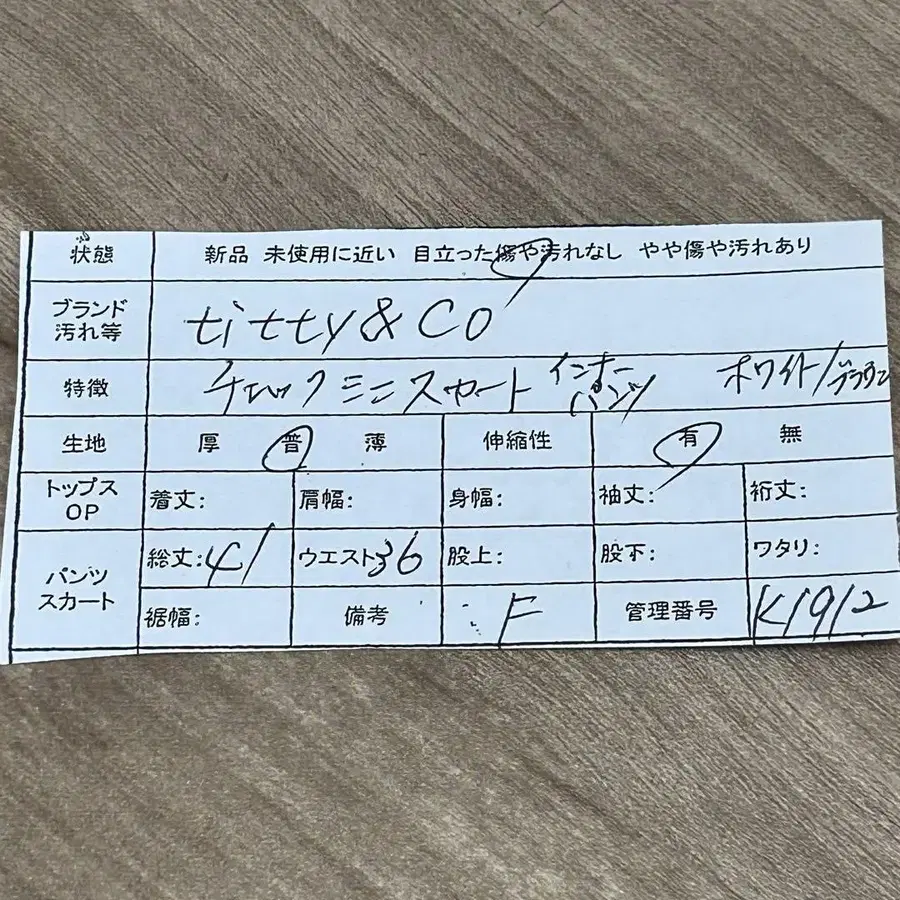 状態 新品 未使用に近い 目立った傷や汚れなし やや傷や汚れあり
ブランド 汚れ等 titty&Co
特徴 チェックミニスカート インナーパンツ ホワイト/ブラウン
生地 厚 普 薄 伸縮性 有 無
トップス OP 着丈: 肩幅: 身幅: 袖丈: 裄丈:
パンツ スカート 総丈:41 ウエスト36 股上: 股下: ワタリ:
裾幅: 備考 F 管理番号 K1912